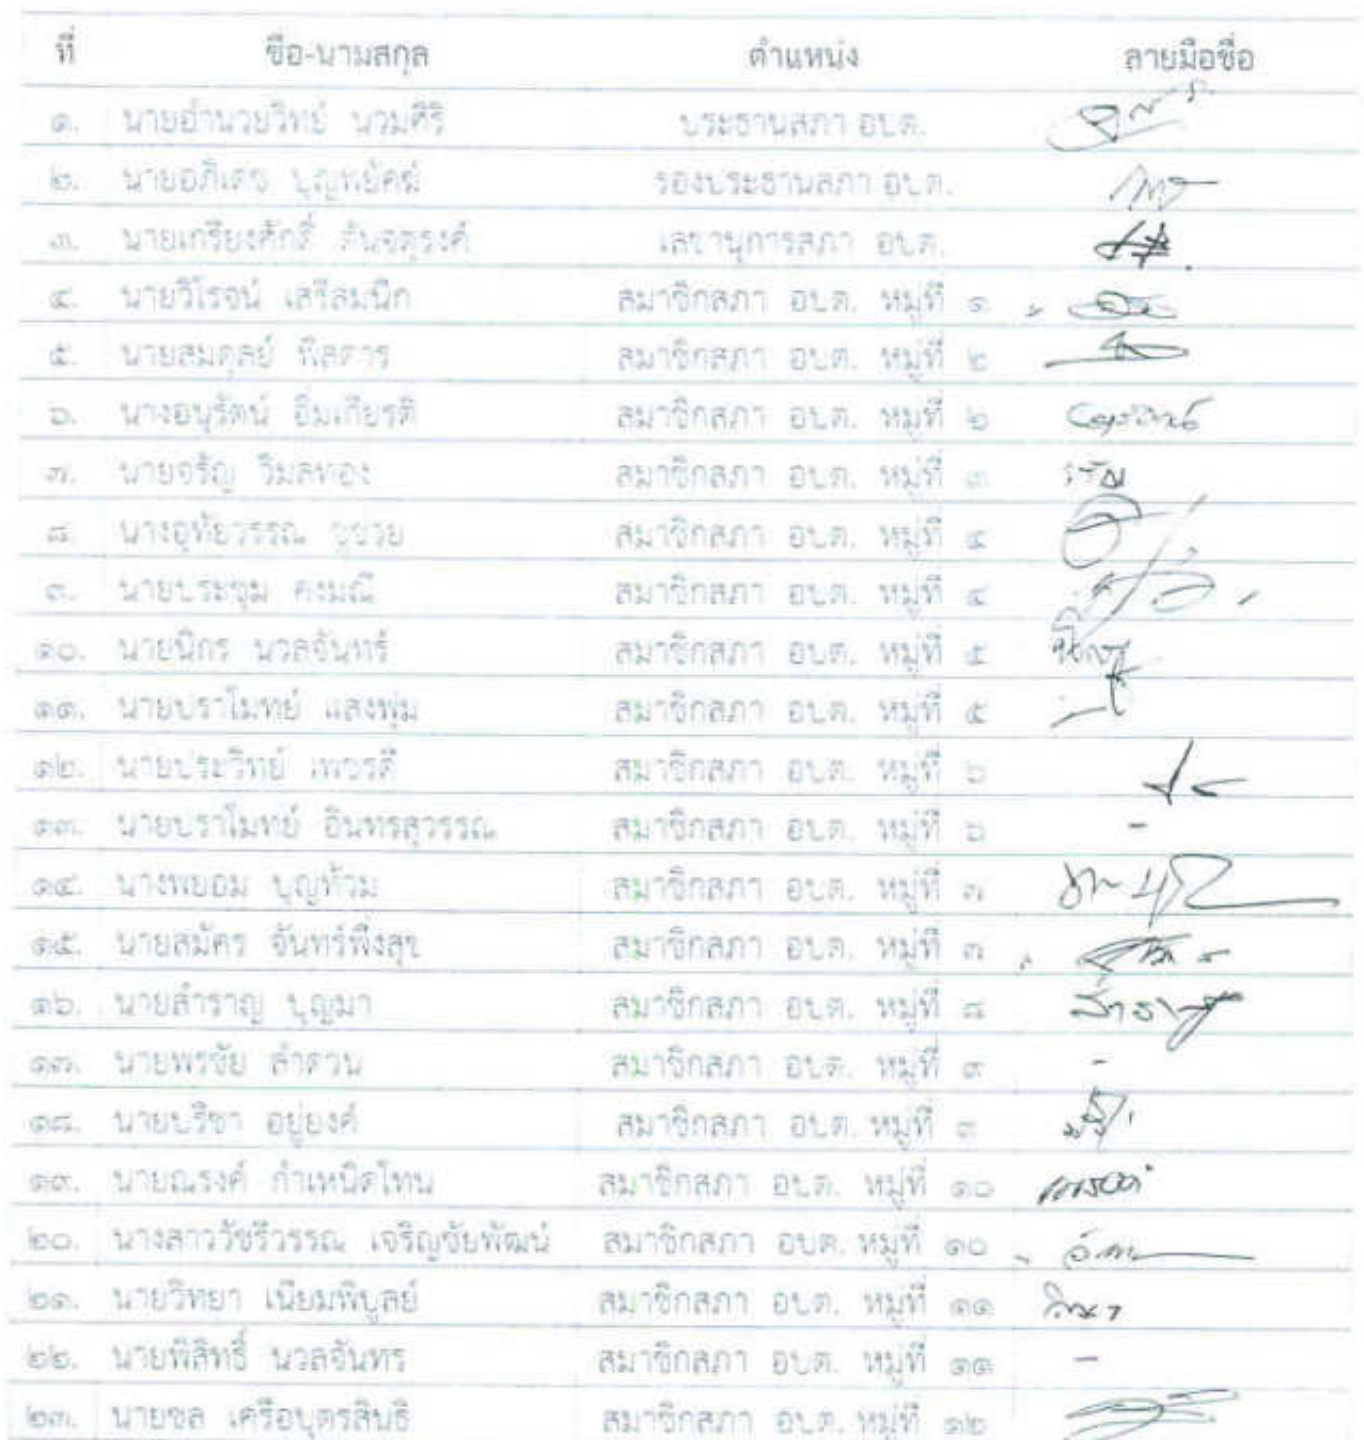 ที่ ชื่อ-นามสกุล ตำแหน่ง ลายมือชื่อ
๑. นายอำนวยวิทย์ นวมศิริ ประธานสภา อบต.
๒. นายอภิเดช บุญพยัคฆ์ รองประธานสภา อบต.
๓. นายเกรียงศักดิ์ ตันจตุรงค์ เลขานุการสภา อบต.
๔. นายวิโรจน์ เสรีสมนึก สมาชิกสภา อบต. หมู่ที่ ๑
๕. นายสมดุลย์ พิสดาร สมาชิกสภา อบต. หมู่ที่ ๒
๖. นางอนุรัตน์ อิ่มเกียรติ สมาชิกสภา อบต. หมู่ที่ ๒
๗. นายจรัญ วิมลทอง สมาชิกสภา อบต. หมู่ที่ ๓ จรัญ
๘. นางอุทัยวรรณ สมาชิกสภา อบต. หมู่ที่ ๔
๙. นายประชุม คงมณี สมาชิกสภา อบต. หมู่ที่ ๔
๑๐. นายนิกร นวลจันทร์ สมาชิกสภา อบต. หมู่ที่ ๕
๑๑. นายปราโมทย์ แสงพุ่ม สมาชิกสภา อบต. หมู่ที่ ๕
๑๒. นายประวิทย์ เพชรดี สมาชิกสภา อบต. หมู่ที่ ๖
๑๓. นายปราโมทย์ อินทรสุวรรณ สมาชิกสภา อบต. หมู่ที่ ๖ -
๑๔. นางพยอม บุญท้วม สมาชิกสภา อบต. หมู่ที่ ๗
๑๕. นายสมัคร จันทร์พึ่งสุข สมาชิกสภา อบต. หมู่ที่ ๗
๑๖. นายสำราญ บุญมา สมาชิกสภา อบต. หมู่ที่ ๘ สำราญ
๑๗. นายพรชัย ลำดวน สมาชิกสภา อบต. หมู่ที่ ๙ -
๑๘. นายปรีชา อยู่ยงค์ สมาชิกสภา อบต. หมู่ที่ ๙
๑๙. นายณรงค์ กำเหนิดโทน สมาชิกสภา อบต. หมู่ที่ ๑๐ ณรงค์
๒๐. นางสาววัชรีวรรณ เจริญชัยพัฒน์ สมาชิกสภา อบต. หมู่ที่ ๑๐
๒๑. นายวิทยา เนียมพิบูลย์ สมาชิกสภา อบต. หมู่ที่ ๑๑
๒๒. นายพิสิทธิ์ นวลจันทร สมาชิกสภา อบต. หมู่ที่ ๑๑ -
๒๓. นายชล เครือบุตรสินธิ สมาชิกสภา อบต. หมู่ที่ ๑๒